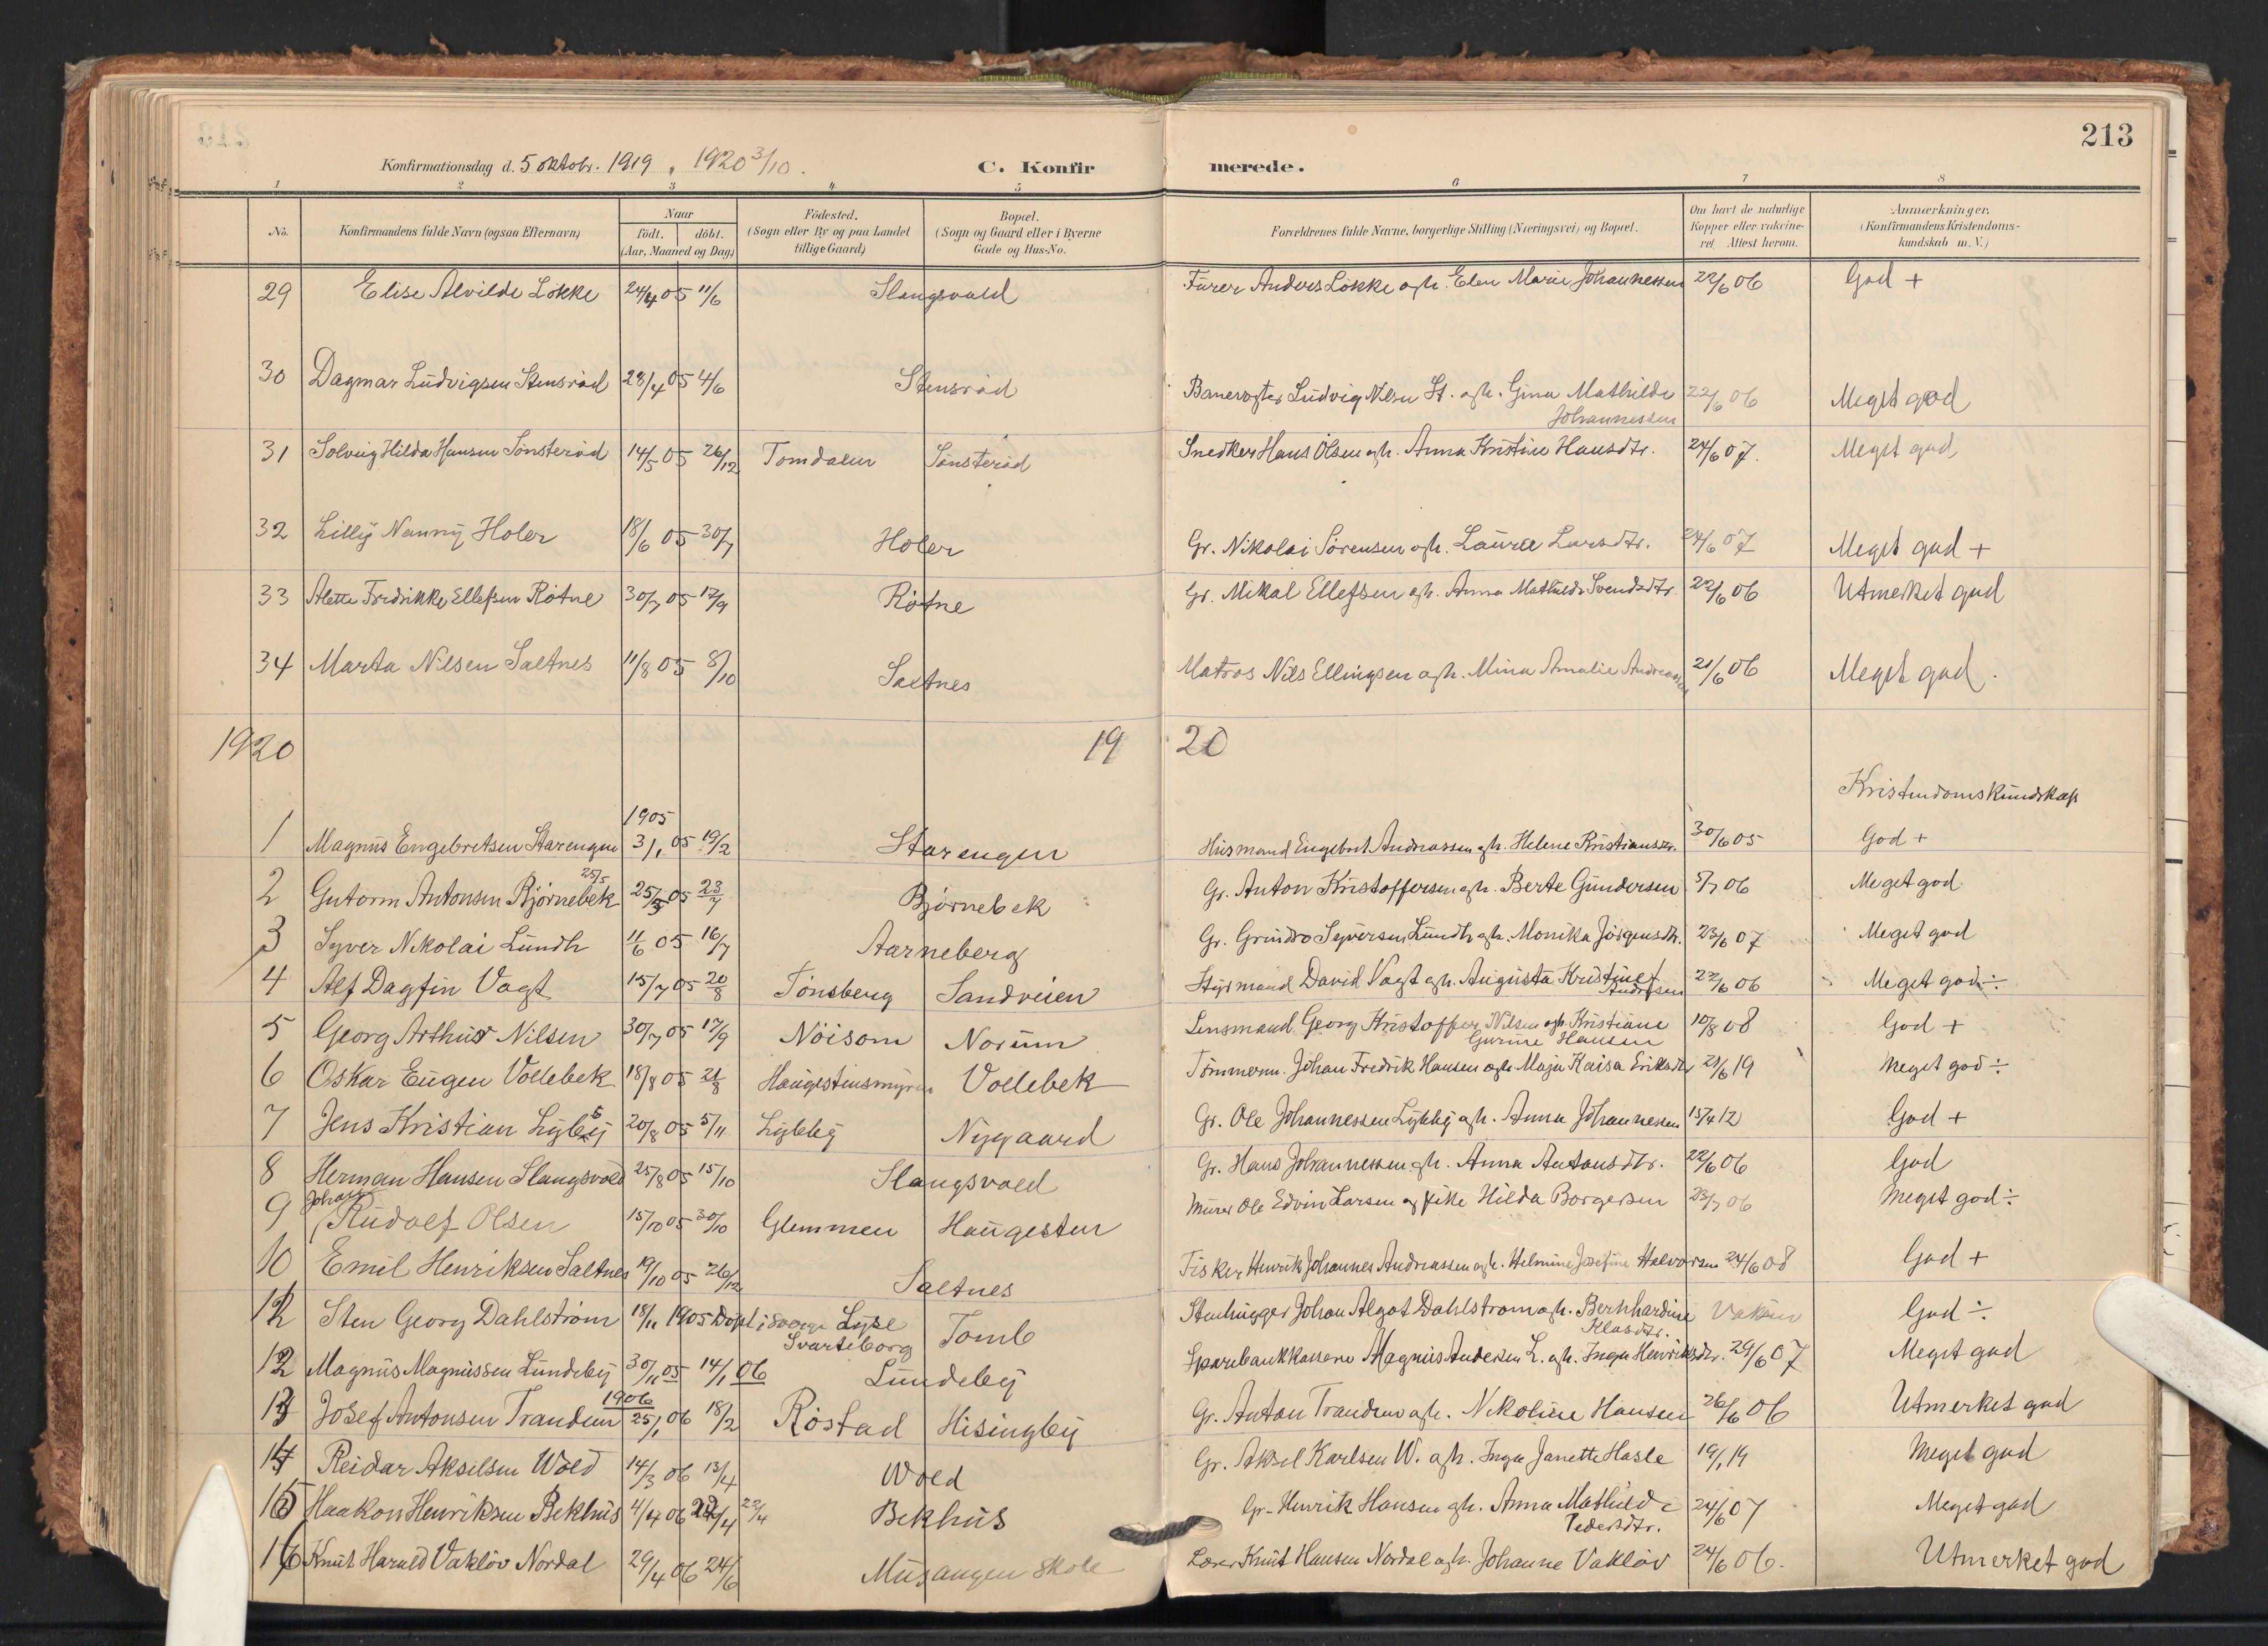 213
Konfirmationsdag d. 5 oktobr. 1919, 1920 3/10. C. Konfir merede.
1 2 3 4 5 6 7 8
No. Konfirmandens fulde Navn (ogsaa Efternavn) Naar født. døbt. (Aar, Maaned og Dag) Fødested. (Sogn eller By og paa Landet tillige Gaard) Bopæl. (Sogn og Gaard eller i Byerne Gade og Hus-No. Forældrenes fulde Navne, borgerlige Stilling (Næringsvei) og Bopæl. Om havt de naturlige Kopper eller vakcineret. Attest herom. Anmærkninger. (Konfirmandens Kristendomskundskab m. V.)
29 Elise Alvilde Løkke 24/4 05 11/6 Slangsvold Furer Anders Løkke o/h. Elen Marie Johannessen 22/6 06 God +
30 Dagmar Ludvigsen Stensrød 28/4 05 4/6 Stensrød Banevogter Ludvig Nilsen St. o/h. Gina Mathilde Johannessen 22/6 06 Meget god
31 Solveig Hilda Hansen Tønsterød 14/5 05 26/12 Tomdalen Tønsterød Snedker Hans Olsen o/h. Anna Kristine Hansdtr. 24/6 07. Meget god
32 Lilly Nanny Holer 18/6 05 30/7 Holer Gr. Nikolai Sørensen o/h. Laura Larsdtr. 24/6 07 Meget god +
33 Alette Fredrikke Ellefsen Røtne 30/7 05 17/9 Røtne Gr. Mikal Ellefsen o/h. Anna Mathilde Svendsdtr. 22/6 06 Utmerket god
34 Marta Nilsen Saltnes 11/8 05 8/10 Saltnes Matros Nils Ellingsen o/h. Mina Amalie Andreassen 21/6 06 Meget god.
1920 19 20
Kristendomskundskap
1905
1 Magnus Engebretsen Starengen 3/1 05 19/2 Starengen Husmand Engebret Andreassen o/h. Helene Kristiansdr. 30/6 05 God +
25/5
2 Gutorm Antonsen Bjørnebek 25/5 05 23/7 Bjørnebek Gr. Anton Kristoffersen o/h. Berte Gundersen 5/7 06 Meget god
3 Syver Nikolai Lundh 11/6 05 16/7 Aarneberg Gr. Grindro Syversen Lundh o/h. Monika Jørgensdtr. 23/6 07 Meget god
4 Alf Dagfin Vagt 15/7 05 20/8 Tønsberg Sandveien Styrmand David Vagt o/h. Augusta Kristine Andresen 22/6 06 Meget god ÷
5 Georg Arthur Nilsen 30/7 05 17/9 Nöisom Norum Lensmand Georg Kristoffer Nilsen o/h. Kristiane Gurine Hansen 10/8 08 God +
6 Oskar Eugen Vollebek 18/8 05 21/8 Haugestensmyren Vollebek Tømmerm. Johan Fredrik Hansen o/h. Maja Kaisa Eriksdtr 21/6 19 Meget god ÷
7 Jens Kristian Lyby 20/8 05 5/11 Lybby Nygaard Gr. Ole Johannessen Lybby o/h. Anna Johannessen 15/4 12 God +
8 Herman Hansen Slangsvold 25/8 05 15/10 Slangsvold Gr. Hans Johannessen o/h. Anna Antonsdtr. 22/6 06 God
Johan
9 Rudolf Olsen 15/10 05 30/10 Glemmen Haugesten Murer Ole Edvin Larsen og frke Hilda Borgersen 23/7 06 Meget god ÷
10 Emil Henriksen Saltnes 19/10 05 26/12 Saltnes Fisker Henrik Johannes Andreassen o/h. Helmine Josefine Halvorsen 24/6 08 God +
12 Sten Georg Dahlstrøm 18/11 1905 Døpt i Sverige Lyse Svarteborg Tomb Stenhugger Johan Algot Dahlstrøm o/h. Bernhardine Klasdtr. God ÷
12 Magnus Magnussen Lundeby 30/11 05 14/1 06 Lundeby Sparebankkasserer Magnus Andersen L. o/h. Inga Henriksdtr. 29/6 07 Meget god
1906
13 Josef Antonsen Trandem 25/1 06 18/2 Røstad Hisingby Gr. Anton Trandem o/h. Nikoline Hansen 26/6 06 Utmerket god
14 Reidar Akselsen Wold 14/3 06 13/4 Wold Gr. Aksel Karlsen W. o/h. Inga Janette Hasle 19/1 19 Meget god
15 Haakon Henriksen Bekhus 4/4 06 22/4 Bekhus Gr. Henrik Hansen o/h. Anna Mathilde Pedersdtr. 24/6 07 Meget god
16 Knut Harald Vakløv Nordal 29/4 06 24/6 Musangen skole Lærer Knut Hansen Nordal o/h. Johanne Vakløv 24/6 06. Utmerket god